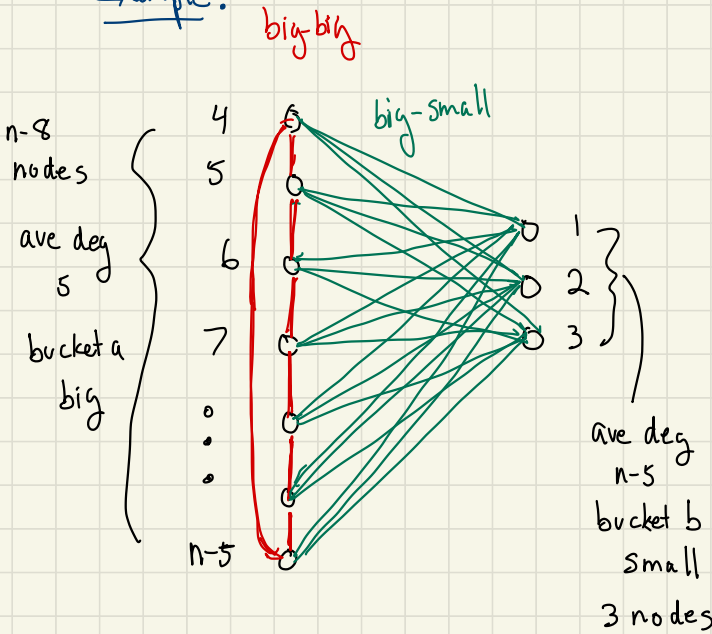 Example:
big-big
big-small
n-8
nodes
ave deg
5
bucket a
big
4
5
6
7
n-5
1
2
3
ave deg
n-5
bucket b
small
3 nodes